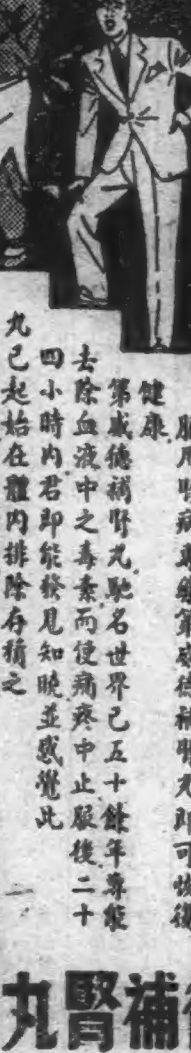 膀胱腎病項純第威德補腎丸即可恢復
健康
第威德補腎丸馳名世界已五十餘年專能
去除血液中之毒素而使痛疼中止服後二十
四小時內君即能發見知曉並感覺此
丸已起始在體內排除存積之
補腎丸